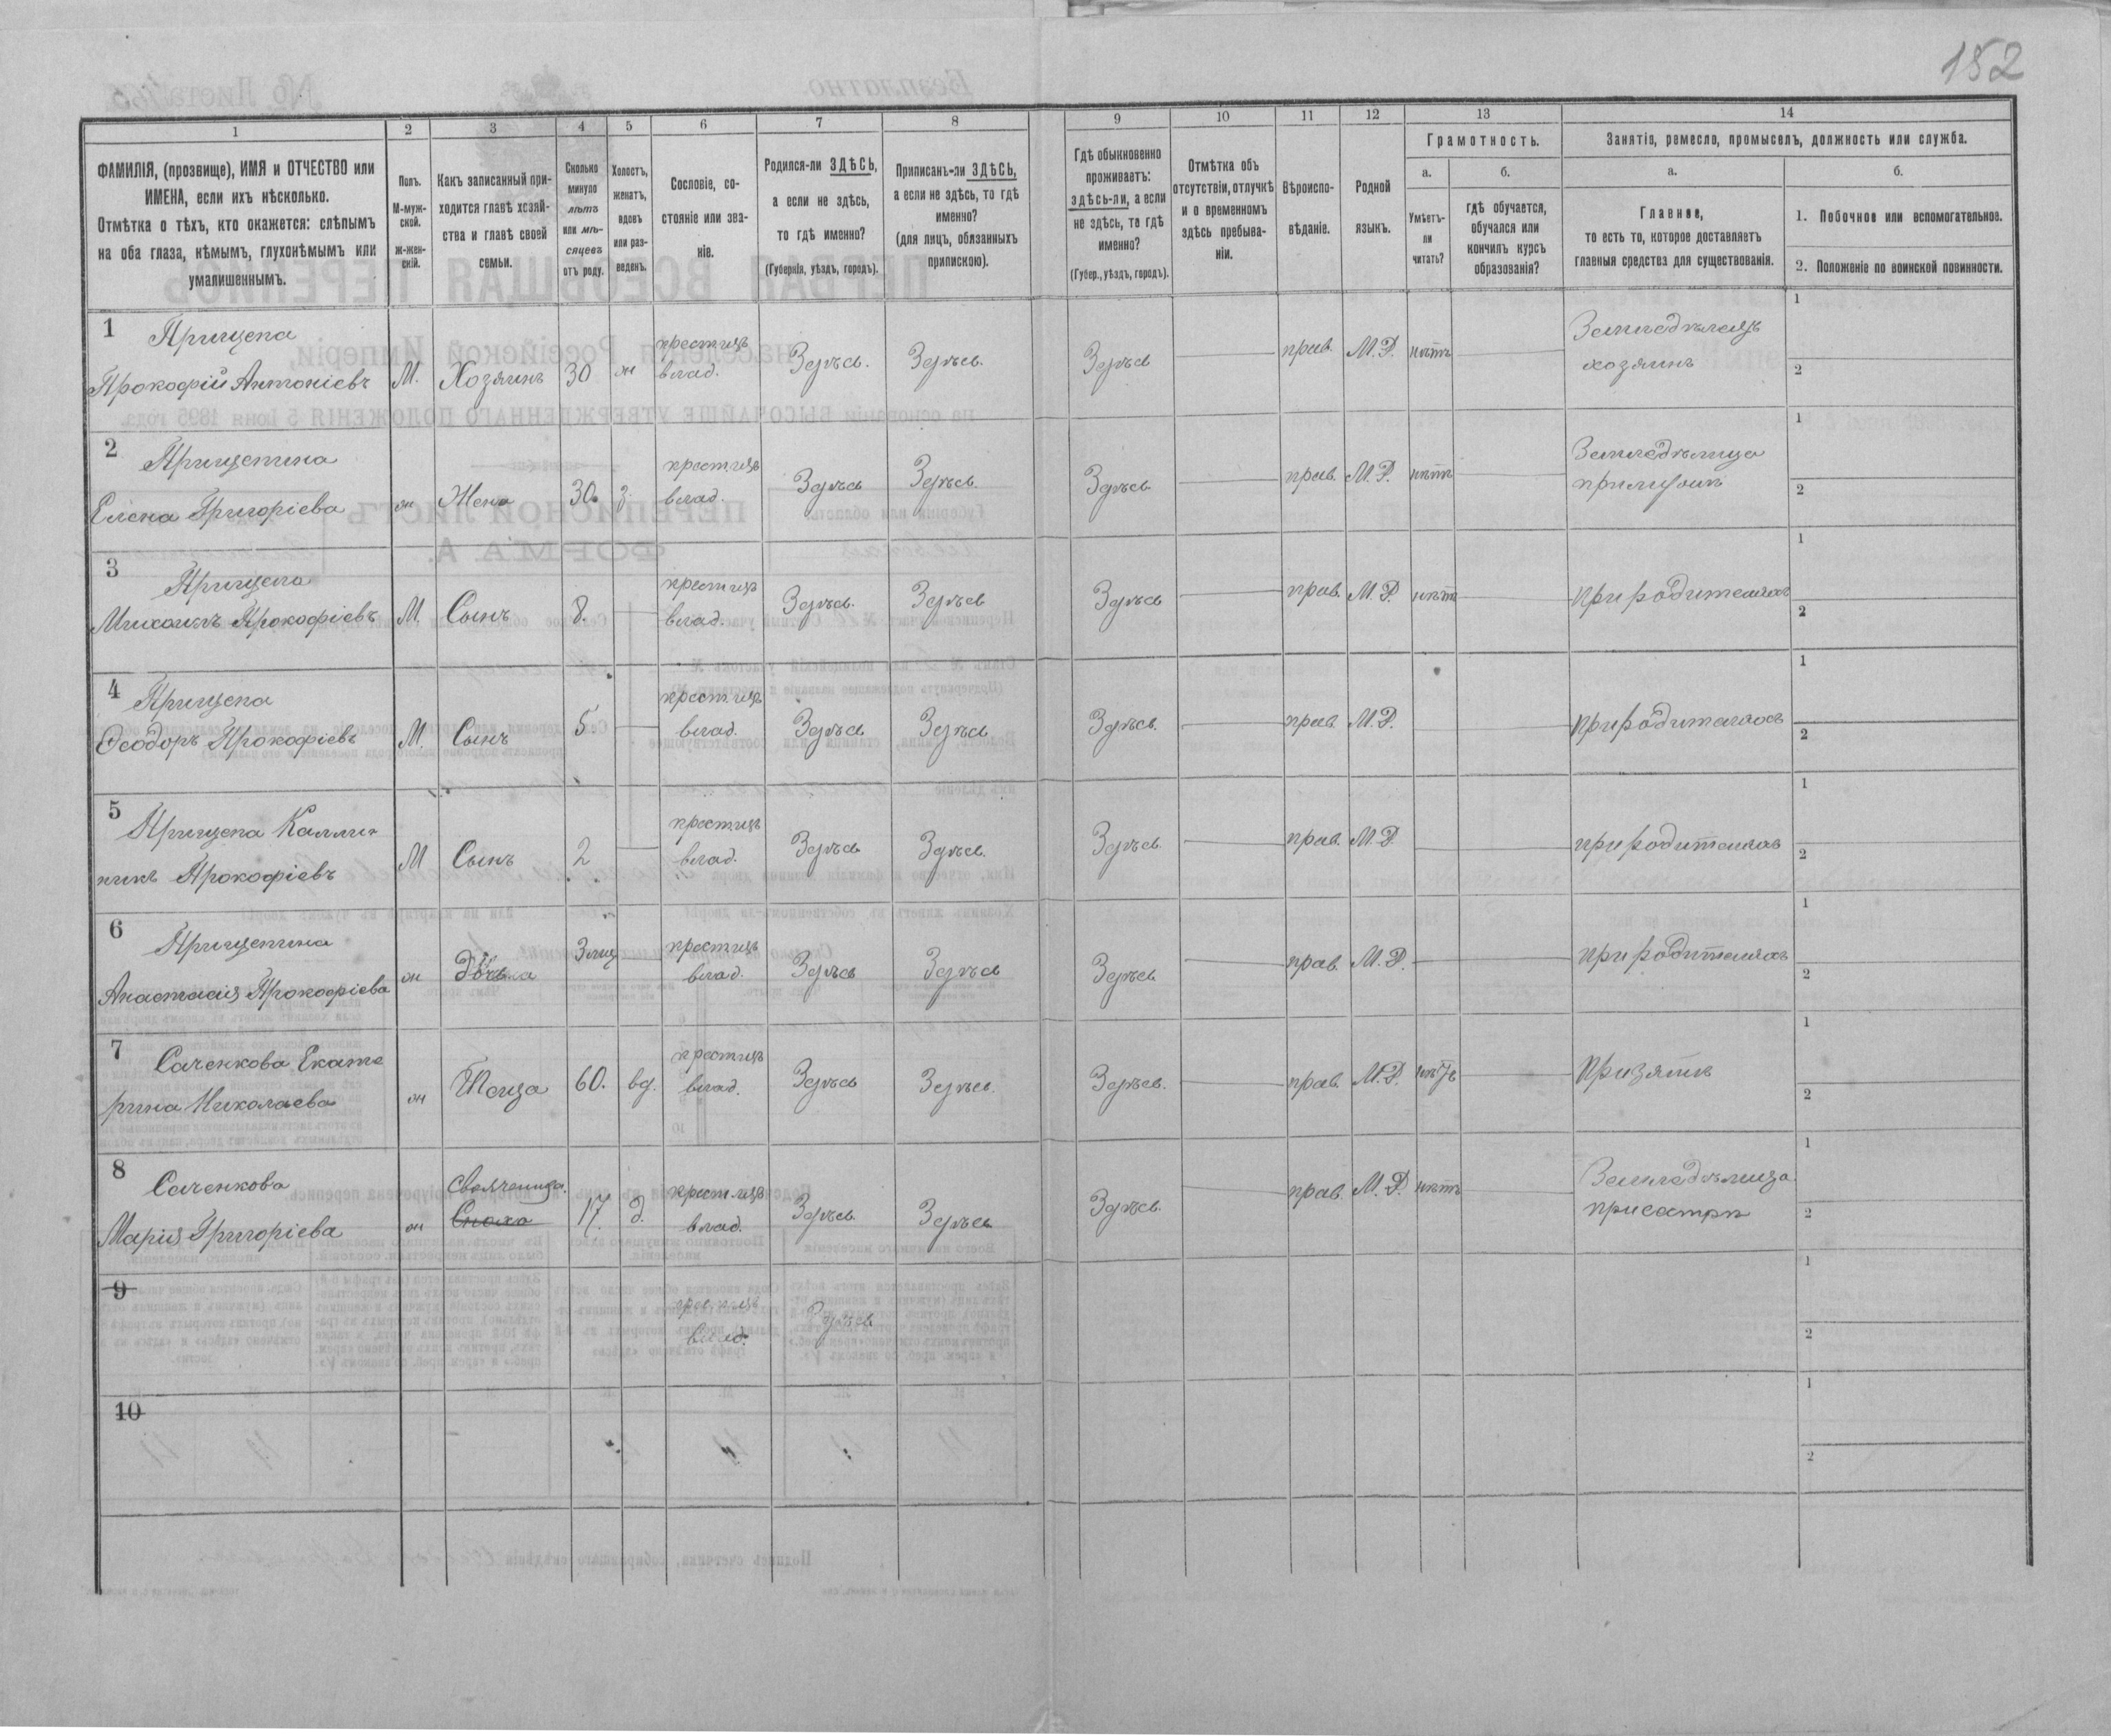 152
1 2 3 4 5 6 7 8 9 10 11 12 13 14
ФАМИЛІЯ, (прозвище), ИМЯ и ОТЧЕСТВО или
ИМЕНА, если ихъ нѣсколько.
Отмѣтка о тѣхъ, кто окажется: слѣпымъ
на оба глаза, нѣмымъ, глухонѣмымъ или
умалишеннымъ.
Полъ.
М-муж-
ской.
ж-жен-
скій.
Какъ записанный при-
ходится главѣ хозяй-
ства и главѣ своей
семьи.
Сколько
минуло
лѣтъ
или мѣ-
сяцевъ
отъ роду.
Холостъ,
женатъ,
вдовъ
или раз-
веденъ.
Сословіе, со-
стояніе или зва-
ніе.
Родился-ли ЗДѢСЬ,
а если не здѣсь,
то гдѣ именно?
(Губернія, уѣздъ, городъ).
Приписанъ-ли ЗДѢСЬ,
а если не здѣсь, то гдѣ
именно?
(для лицъ, обязанныхъ
припискою).
Гдѣ обыкновенно
проживаетъ:
здѣсь-ли, а если
не здѣсь, то гдѣ
именно?
(Губер., уѣздъ, городъ).
Отмѣтка объ
отсутствіи, отлучкѣ
и о временномъ
здѣсь пребыва-
ніи.
Вѣроиспо-
вѣданіе.
Родной
языкъ.
Грамотность.
а.
Умѣетъ-
ли
читать?
б.
гдѣ обучается,
обучался или
кончилъ курсъ
образованія?
Занятіе, ремесло, промыселъ, должность или служба.
а.
Главное,
то есть то, которое доставляетъ
главныя средства для существованія.
б.
1. Побочное или вспомогательное.
2. Положеніе по воинской повинности.
1 Прищепа крест. изъ Земледѣлецъ 1
Прокофій Антоніевъ М. Хозяинъ 30 ж влад. Здѣсь. Здѣсь. Здѣсь прав. М.Р. нѣтъ хозяинъ 2
2 Прищепина крест. изъ Земледѣлица 1
Елена Григоріева ж Жена 30. з. влад. Здѣсь Здѣсь. Здѣсь прав. М.Р. нѣтъ 2
3 Прищепа крест. изъ 1
Михаилъ Прокофіевъ М. Сынъ 8. влад. Здѣсь. Здѣсь Здѣсь прав. М.Р. нѣтъ при родителяхъ 2
4 Прищепа крест. изъ 1
Ѳеодоръ Прокофіевъ М. Сынъ 5 влад. Здѣсь Здѣсь Здѣсь. прав. М.Р. при родителяхъ 2
5 Прищепа Калли- крест. изъ 1
никъ Прокофіевъ М Сынъ 2 влад. Здѣсь Здѣсь. Здѣсь. прав. М.Р. при родителяхъ 2
6 Прищепина крест. изъ 1
Анастасія Прокофіева ж Дочь 3 мѣс влад. Здѣсь Здѣсь Здѣсь прав. М.Р. при родителяхъ 2
7 Саченкова Екате крест. изъ 1
рина Николаева ж Теща 60. вд. влад. Здѣсь Здѣсь. Здѣсь. прав. М.Р. нѣтъ при зятѣ 2
8 Саченкова Своячениза. крест. изъ Земледѣлица 1
Марія Григоріева ж Сноха 17. д. влад. Здѣсь. Здѣсь Здѣсь. прав. М.Р. нѣтъ при сестрѣ 2
9 крест. изъ 1
влад. Здѣсь 2
10 1
2